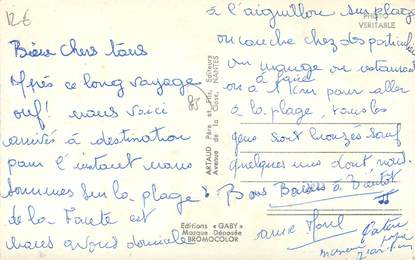 12€
Bien chers tous
Après ce long voyage
ouf! nous voici
arrivés à destination
pour l'instant nous
sommes sur la plage
de la Faute et
nous avons domicile
à l'aiguillon sur plage
on couche chez des particuliers
on mange au restaurant
on a à peine 1 km pour aller
à la plage, tous les
gens sont bronzés sauf
quelques uns dont nous.
Bons Baisers à Bientôt
PHOTO
VERITABLE
ARTAUD Père et Fils, Editeurs
Avenue de la Close, NANTES
Editions « GABY »
Marque Déposée
BROMOCOLOR